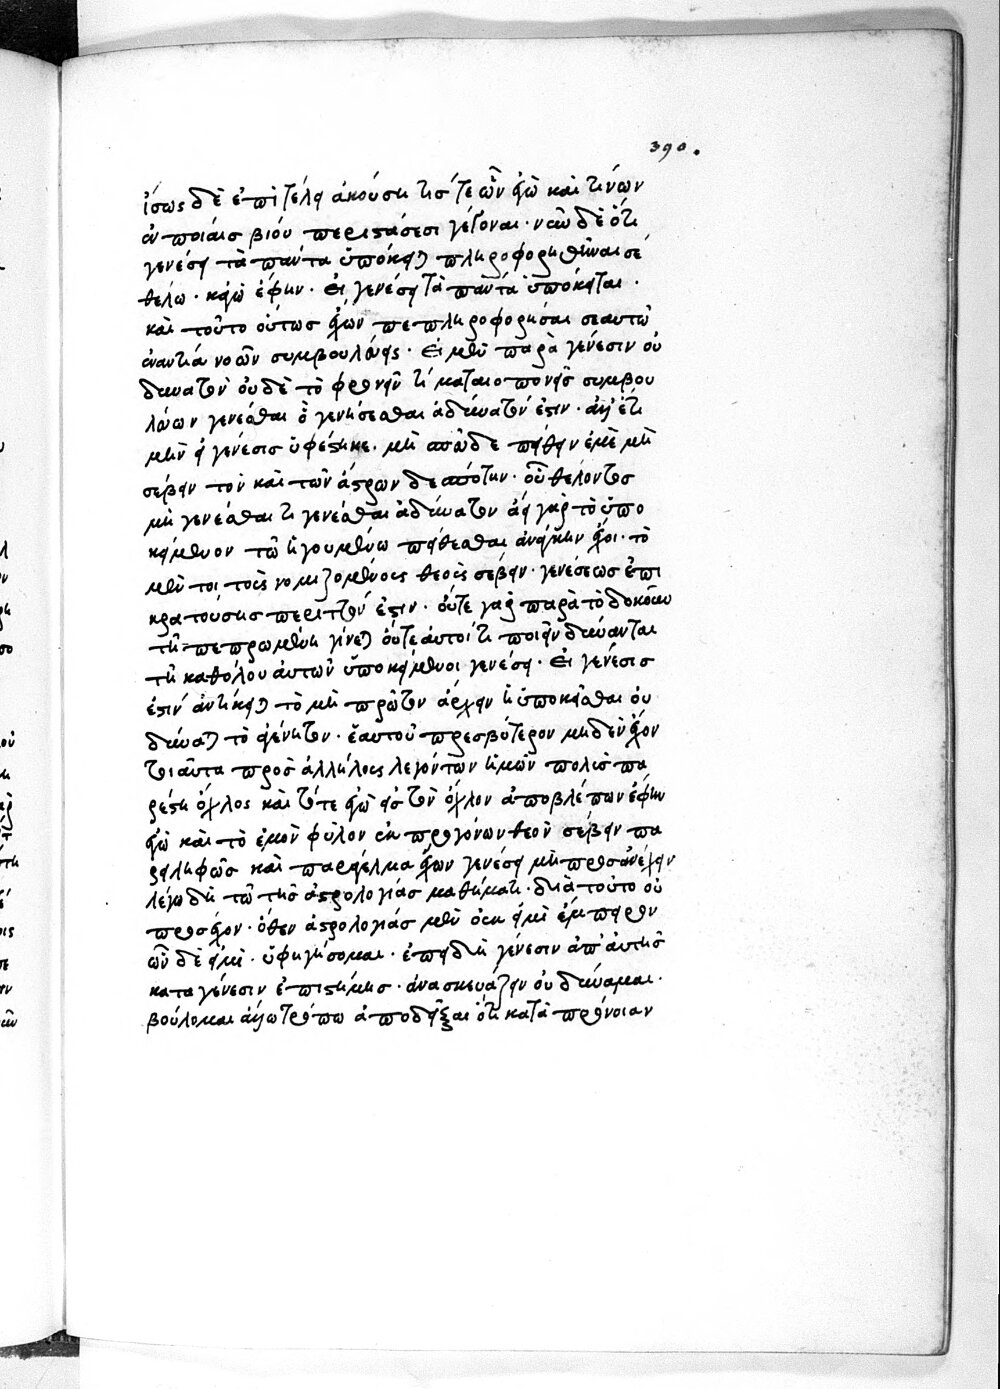 390.
ἴσως δὲ ἐπὶ τέλει ἀκούσῃ τίς τε ὢν ἐγὼ καὶ τίνων
ἐν ποίαις βίου περιστάσεσι γέγοναι· νῦν δὲ ὅτι
γενέσει τὰ πάντα ὑπόκειται πληροφορηθῆναί σε
θέλω· κἀγὼ ἔφην· Εἰ γενέσει τὰ πάντα ὑπόκειται·
καὶ τοῦτο οὕτως ἔχων πεπληροφόρησαι σεαυτῷ
ἐναντία νοῶν συμβουλεύεις· Εἰ μὲν παρὰ γένεσιν οὐ
δυνατὸν οὐδὲ τὸ φρονεῖν τί ματαιοπονεῖς συμβου
λεύων γενέσθαι ὃ γενήσεσθαι ἀδύνατόν ἐστιν· ἀλλ' ἔτι
μὴν εἰ γένεσις ὑφέστηκε· μὴ σπεῦδε πείθειν ἐμὲ μὴ
σέβειν τὸν καὶ τῶν ἄστρων δεσπότην· οὗ θέλοντος
μὴ γενέσθαι τι γενέσθαι ἀδύνατον ἀεὶ γὰρ τὸ ὑπο
κείμενον τῷ ἡγουμένῳ πείθεσθαι ἀνάγκην ἔχει· τὸ
μέντοι τοὺς νομιζομένους θεοὺς σέβειν· γενέσεως ἐπι
κρατούσης περιττόν ἐστιν· οὔτε γὰρ παρὰ τὸ δοκοῦν
τῇ πεπρωμένῃ γίνεται οὔτε αὐτοί τι ποιεῖν δύνανται
τῇ καθόλου αὐτῶν ὑποκείμενοι γενέσει· Εἰ γένεσις
ἐστίν ἀντίκειται τὸ μὴ πρῶτον ἄρχειν ἢ ὑποκεῖσθαι οὐ
δύναται τὸ ἀγένητον· ἑαυτοῦ πρεσβύτερον μηδὲν ἔχον
τοιαῦτα πρὸς ἀλλήλους λεγόντων ἡμῶν πολὺς πα
ρέστη ὄχλος καὶ τότε ἐγὼ εἰς τὸν ὄχλον ἀποβλέπων ἔφην
ἐγὼ καὶ τὸ ἐμὸν φῦλον ἐκ προγόνων θεὸν σέβειν πα
ρειληφὼς καὶ παράγγελμα ἔχων γενέσει μὴ προσανέχειν
λέγω δὴ τῷ τῆς ἀστρολογίας μαθήματι· διὰ τοῦτο οὐ
προσέσχον· ὅθεν ἀστρολογίας μὲν οὔκ εἰμι ἔμπειρον
ὧν δὲ εἰμί· ὑφηγήσομαι· ἐπειδὴ γένεσιν ἀπ' αὐτῆς
κατα γένεσιν ἐπιστήμης· ἀνασκευάζειν οὐ δύναμαι·
βούλομαι ἄλλῳ τρόπῳ ἀποδεῖξαι ὅτι κατὰ πρόνοιαν